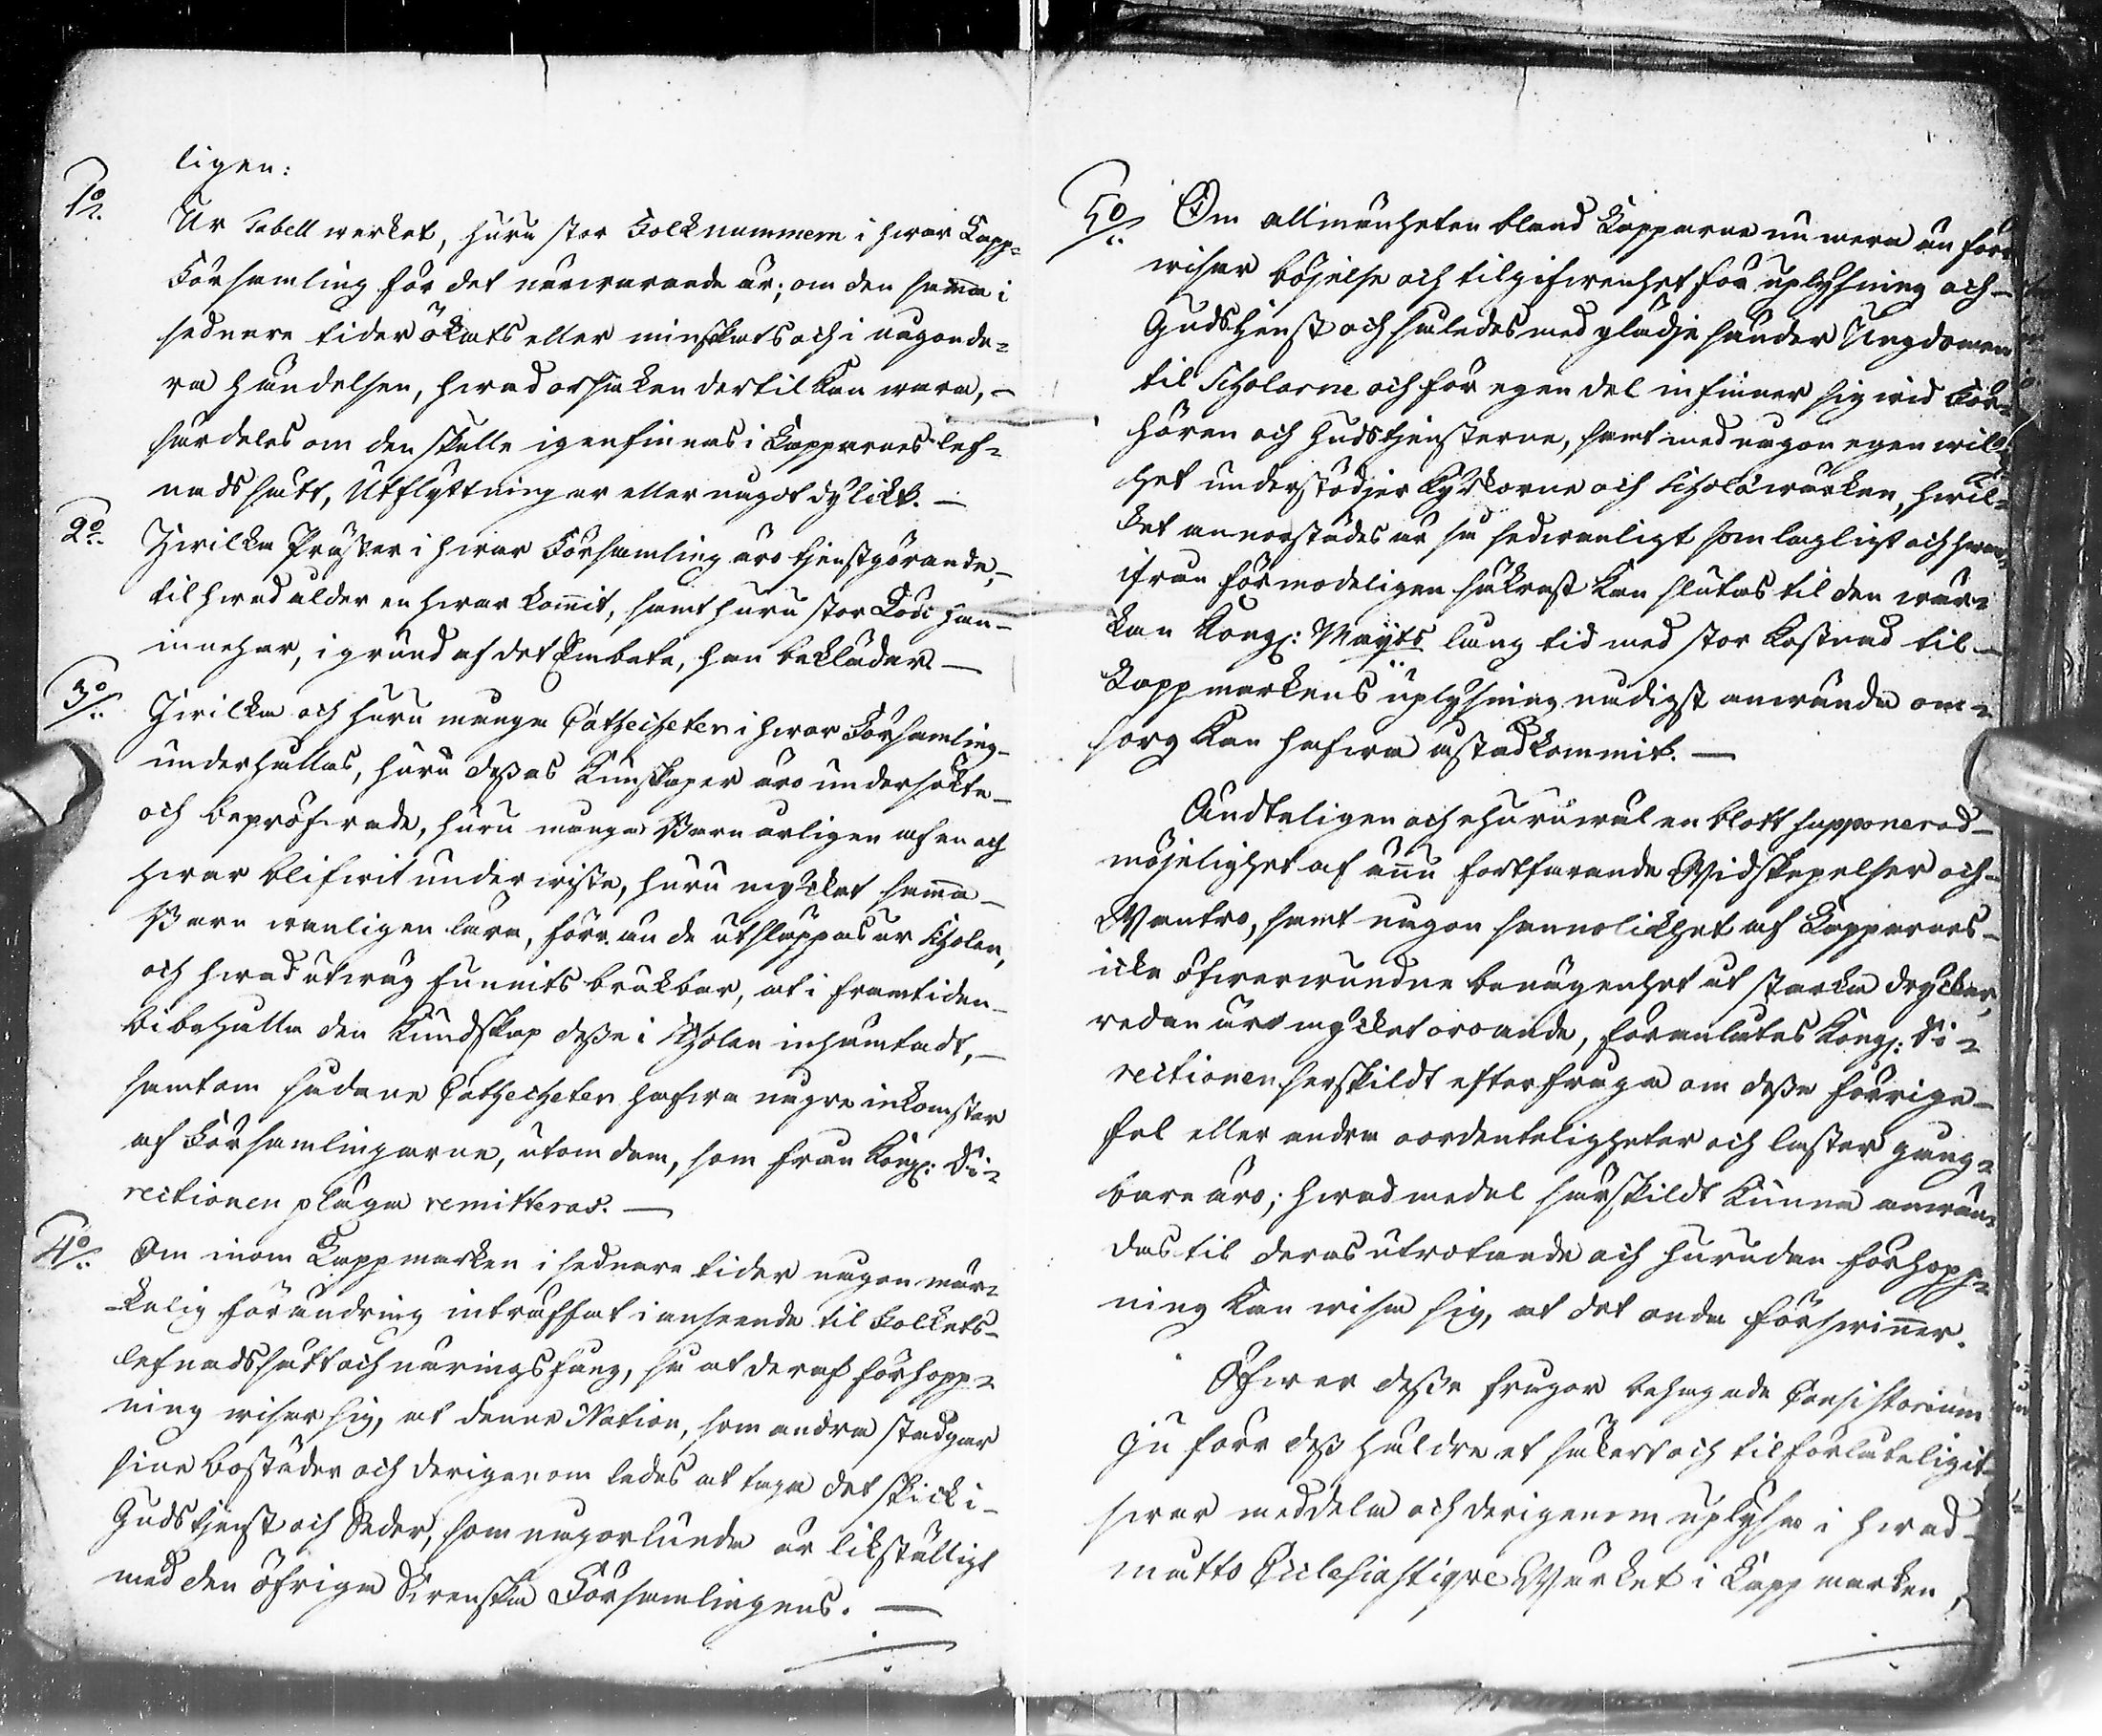 ligen:
1o. Ur Tabell werket, huru stor Folknummern i hwar Lapp-
Församling för det närwarande är; om den samma i
sednare tider ökats eller minskats och i någonde-
ra händelsen, hwad orsaken dertil kan wara, -
särdeles om den skulle igenfinnas i Lapparnes lef-
nadssätt, Utflyttningar eller något dylikt. -
2o. Hwilka Präster i hwar Församling äro tjenstgörande, -
til hwad ålder en hwar kommit, samt huru stor Lön han -
innehar, i grund af det Embete, han bekläder -
3o. Hwilka och huru många Catheicheter i hwar Församling -
underhållas, huru dessas Kunskaper äro undersökte -
och bepröfwade, huru många Barn årligen af en och
hwar blifwit underwiste, huru mycket samma -
Barn wanligen lära, förr än de utsläppas ur Scholan,
och hwad utwäg funnits brukbar, at i framtiden -
bibehålla den Kundskap desse i Scholan inhämtadt, -
samt om sådane Catheicheter hafwa någre inkomster
af Församlingarne, utom dem, som från Kongl: Di-
rectionen pläga remitteras. -
4o. Om inom Lappmarken i sednare tider någon mär-
kelig förändring inträffat i anseende til Folkets -
lefnadssätt och näringsfång, så at deraf förhopp-
ning wisar sig, at denne Nation, som andra stadgar
sine bostäder och derigenom ledes at taga det skick i -
Gudstjenst och Seder, som någorlunda är likställigt
med den öfriga Swenska Församlingens. -
5o. Om allmänheten bland Lapparne nu mera än förr
wisar böjelse och tilgifwenhet för uplysning och -
Gudstjenst och således med glädje sänder Ungdomen
til Scholarne och för egen del infinner sig wid För-
hören och Gudstjensterne, samt med någon egen willig-
het understödjer Kyrkorne och Scholäwärken, hwil-
ket annorstädes är så sedwanligt som lagligt och hwar-
ifrån förmodeligen säkrast kan slutas til den wär-
kan Kongl: Maijts lång tid med stor Kostnad til -
Lappmarkens uplysning nådigst anwände om-
sorg kan hafwa åstadkommit. -
Ändteligen och ehuruwäl en blott supponerad -
möjelighet af ännu fortfarande Widskepelser och -
Wantro, samt någon sannolikhet af Lapparnes -
icke öfwerwundne benägenhet åt starka drycker,
redan äro mycket oroande, föranlåtes Kongl: Di-
rectionen serskildt efterfråga om desse förrige -
fel eller andra oordenteligheter och laster gång-
bare äro; hwad medel särskildt kunna anwän-
das til deras utrotande och hurudan förhopp-
ning kan wisa sig, at det onda förswinner.
Öfwer desse frågor behagade Consistorium
ju förr dess häldre et säkert och tilförlåteligit -
swar meddela och derigenom uplysa i hwad -
måtto Ecclesiastique Wärket i Lappmarken,